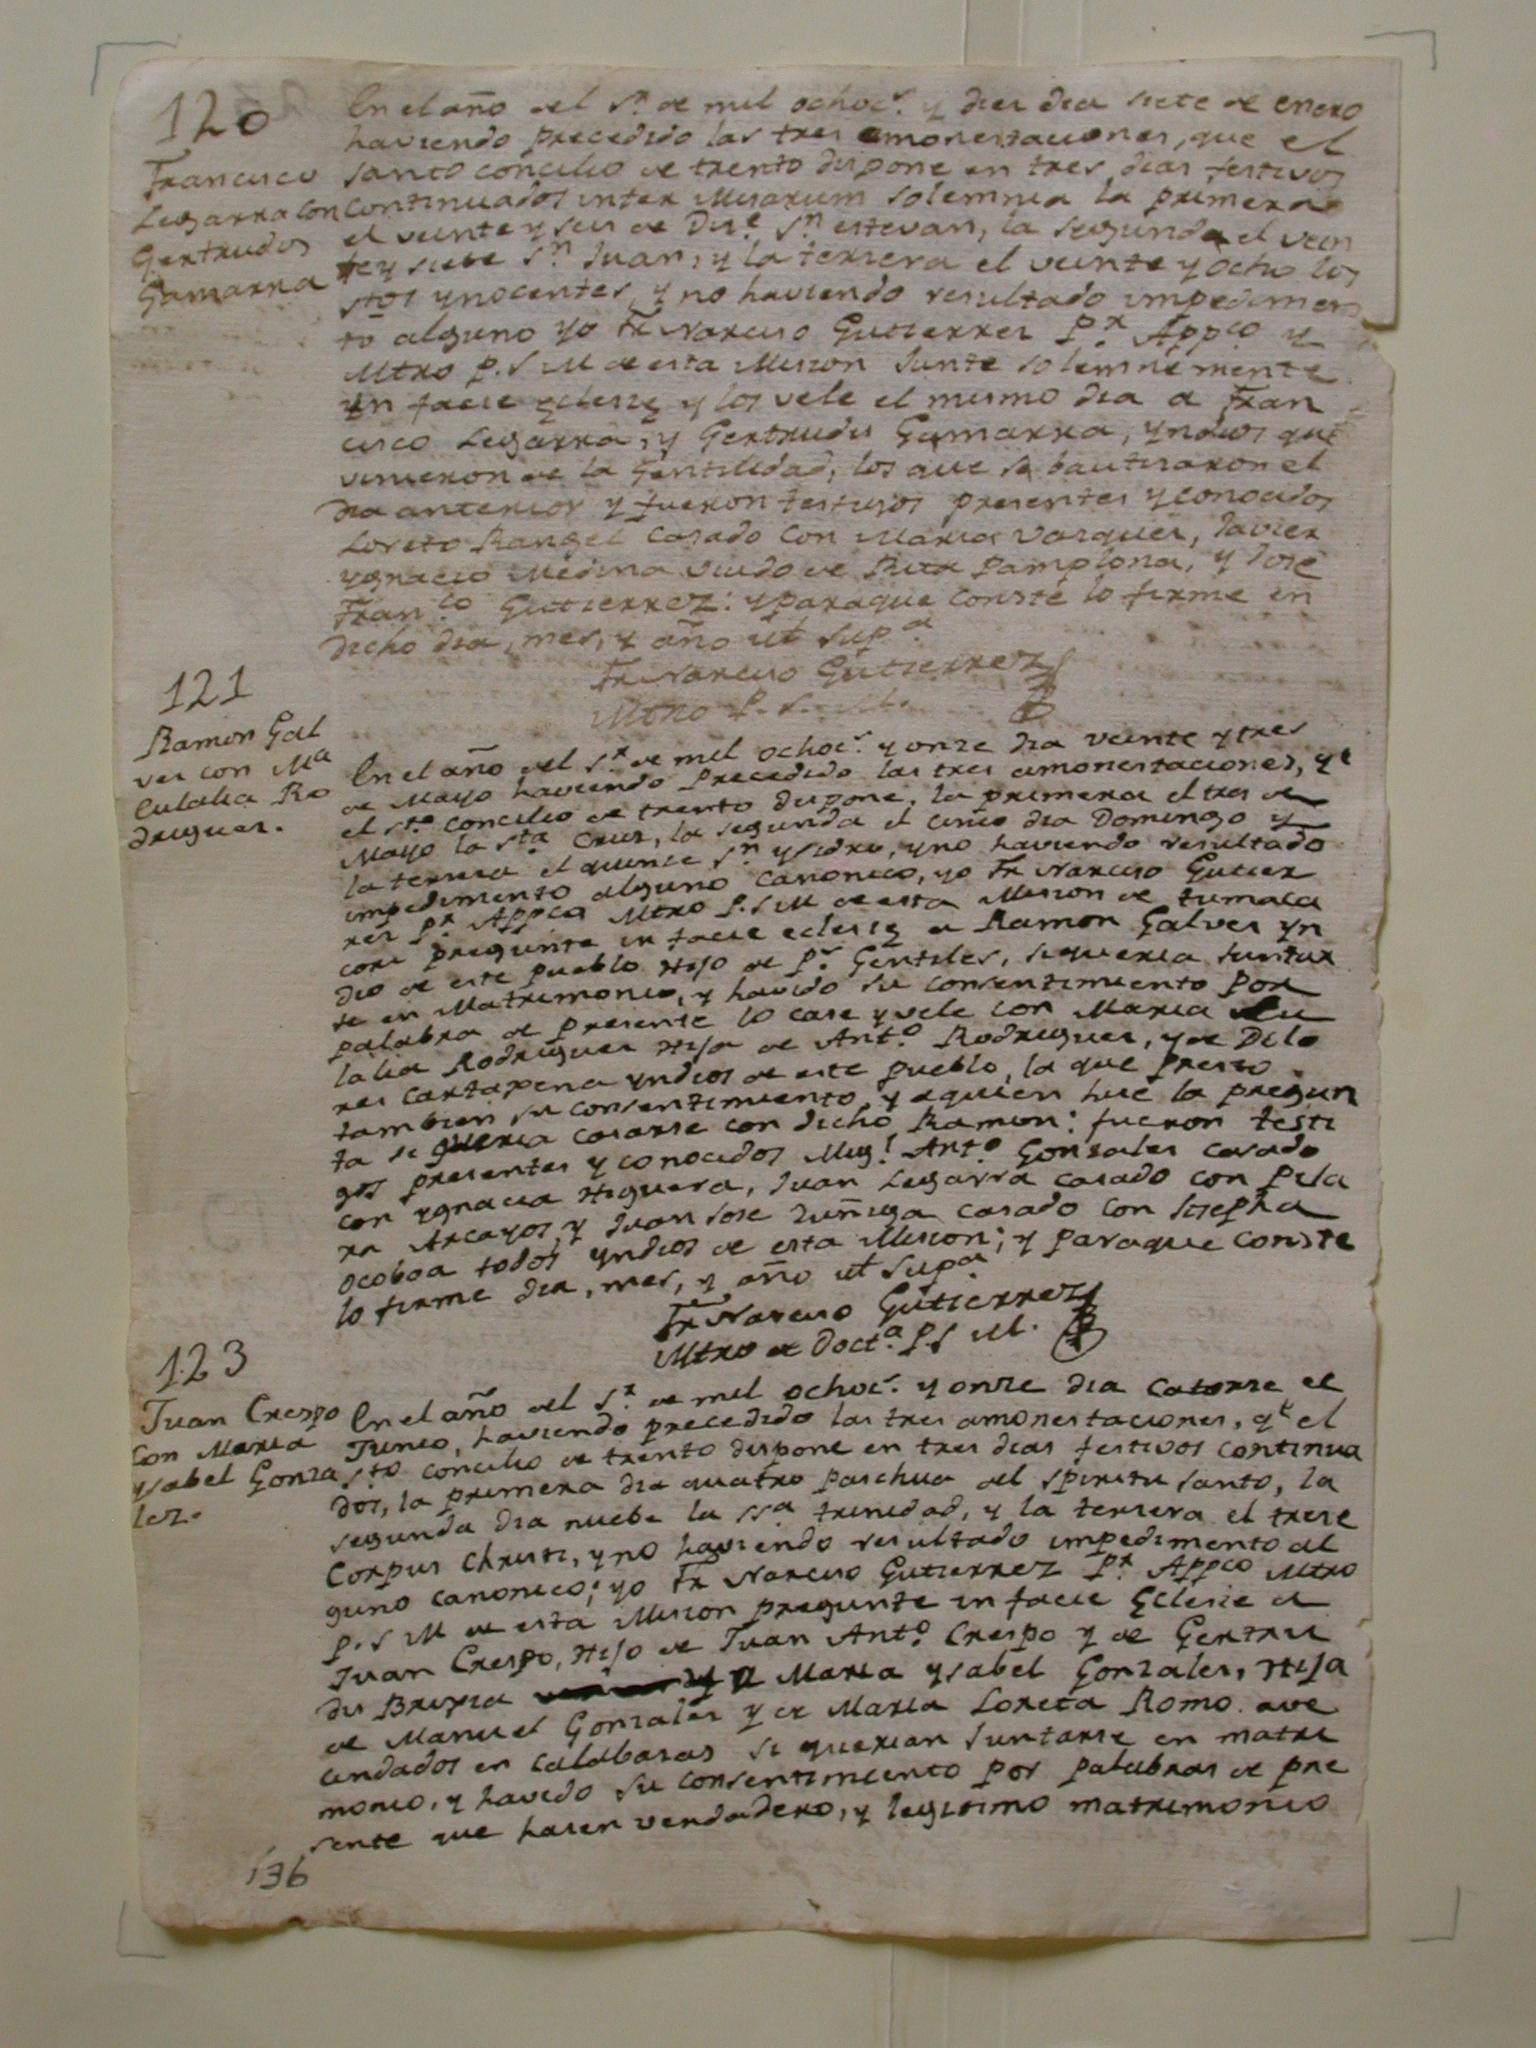 120
Francisco
Legarra con
Gertrudis
Gamarra
En el año del Sr. de mil ochocs. y dies dia siete de enero
haviendo precedido las tres amonestaciones, que el
santo concilio de trento dispone en tres dias festivos
continuados inter Misarum solemnia la primera
el veinte y seis de Dize. Sn. estevan, la segunda el vein
te y siete Sn. Juan, y la tersera el veinte y ocho los
stos ynocentes, y no haviendo resultado impedimen
to alguno yo Fr Narciso Gutierres Pr. Appco y
Mtro P.S M de esta Mision Junte solemnemente
yn facie eclesie y los vele el mismo dia a Fran
cisco Legarra, y Gertrudis Gamarra, yndios que
vinieron de la Gentilidad, los que se bautisaron el
dia anterior y fueron testigos presentes y conocidos
Loreto Rangel casado con Maria Vasques, Javier
ygnacio Medina viudo de Rita Pamplona, y José
Franco. Gutierrez: y paraque conste lo firme en
dicho dia, mes, y año ut supa.
Fr Narciso Gutierrez
Mtro P. S. M.
121
Ramon Gal
ves con Ma
Eulalia Ro
drigues.
En el año del Sr. de mil ochocs. y onse dia veinte y tres
de Mayo haviendo precedido las tres amonestaciones, qe
el sto. concilio de trento dispone, la primera el tres de
Mayo la Sta Crus, la segunda el cinco dia Domingo y
la tersera el quinse Sn. ysidro, y no haviendo resultado
impedimento alguno canonico, yo Fr Narciso Gutier
res Pr. Appco Mtro P.S M de esta Mision de tumaca
cori pregunte in facie eclesie a Ramon Galves yn
dio de este pueblo Hijo de Ps. Gentiles, si queria Juntar
se en Matrimonio, y havido su consentimiento por
palabra de presente lo case y vele con Maria Eu
lalia Rodrigues Hija de Anto. Rodrigues, y de Dolo
res Cartaxena yndios de este pueblo, la que presto
tambien su consentimiento, y a quien hise la pregun
ta si queria casarse con dicho Ramon: fueron testi
gos presentes y conocidos Migl. Anto. Gonsales casado
con ygnacia Higuera, Juan Legarra casado con Pila
ra Arcayos, y Juan Jose Zuñiga casado con Josepha
Ocoboa todos yndios de esta Mision; y paraque conste
lo firme dia, mes, y año ut supa
Fr Narciso Gutierrez
Mtro de Docta. P.S M.
123
Juan Crespo
con Maria
ysabel Gonza
lez.
En el año del Sr. de mil ochocs. y onse dia catorse de
Junio, haviendo precedido las tres amonestaciones, qe el
sto concilio de trento dispone en tres dias festivos continua
dos, la primera dia quatro paschua del spiritu santo, la
segunda dia nuebe la SSa trinidad, y la tersera el trese
Corpus Christi, y no haviendo resultado impedimento al
guno canonico; yo Fr Narciso Gutierrez Pr. Appco Mtro
P. S M de esta Mision pregunte in facie Eclesie a
Juan Crespo, Hijo de Juan Anto. Crespo y de Gertru
dis Brixia y a Maria ysabel Gonzales, Hija
de Manuel Gonsales y de Maria Loreta Romo ave
cindados en Calabasas si querian Juntarse en matri
monio, y havido su consentimiento por palabras de pre
sente que hasen verdadero, y legitimo matrimonio
136